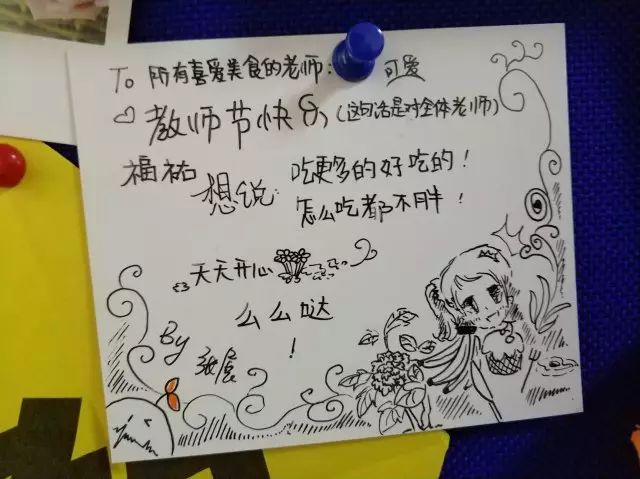 To 所有喜爱美食的老师：
可爱
教师节快乐（这句话是对全体老师）
福祐 想说：吃更多的好吃的！
怎么吃都不胖！
天天开心
么么哒
！
By